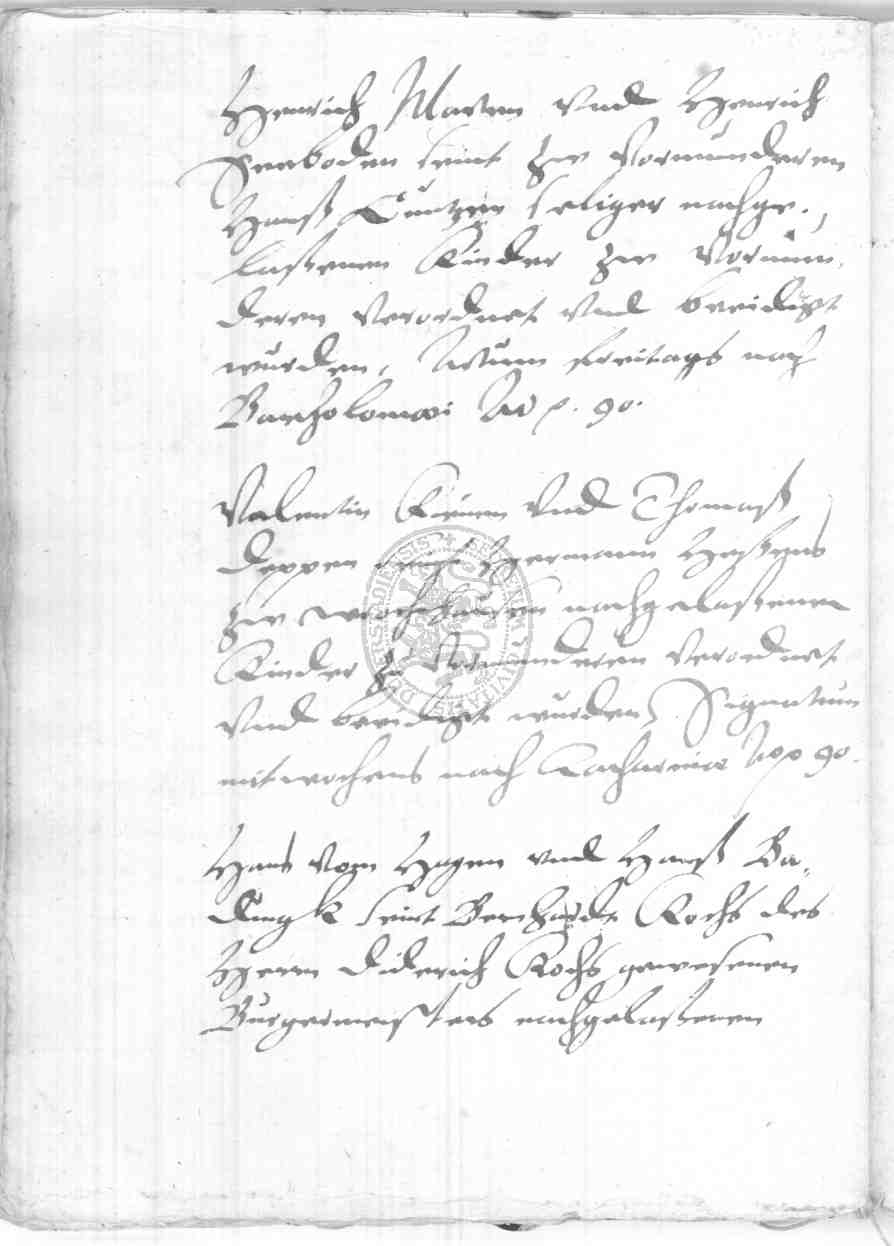 Henrich Marten Vnd Henrich
Seeboden seint zu Vormunderen
Hanß Cuntzen seliger nachge-
laßenen Kinder zu Vormun-
deren Verordnet Vnd beeidigt
wurden, Actum freitags nach
Bartholomæi Aõ p. 90.
Valentin Vnd Thomaß
Deppen seint Hermann
zu nachgelaßenen
Kinder zu Vormunderen Verordnet
Vnd beeidigt wurden, Signatum
mitwochens nach Catharinæ Aõ p 90.
Hans Vom Hagen vnd Hanß Ba-
dungk seint Berchardt Kochs des
Herrn Diderich Kochs gewesenen
Burgermeisters nachgelaßenen